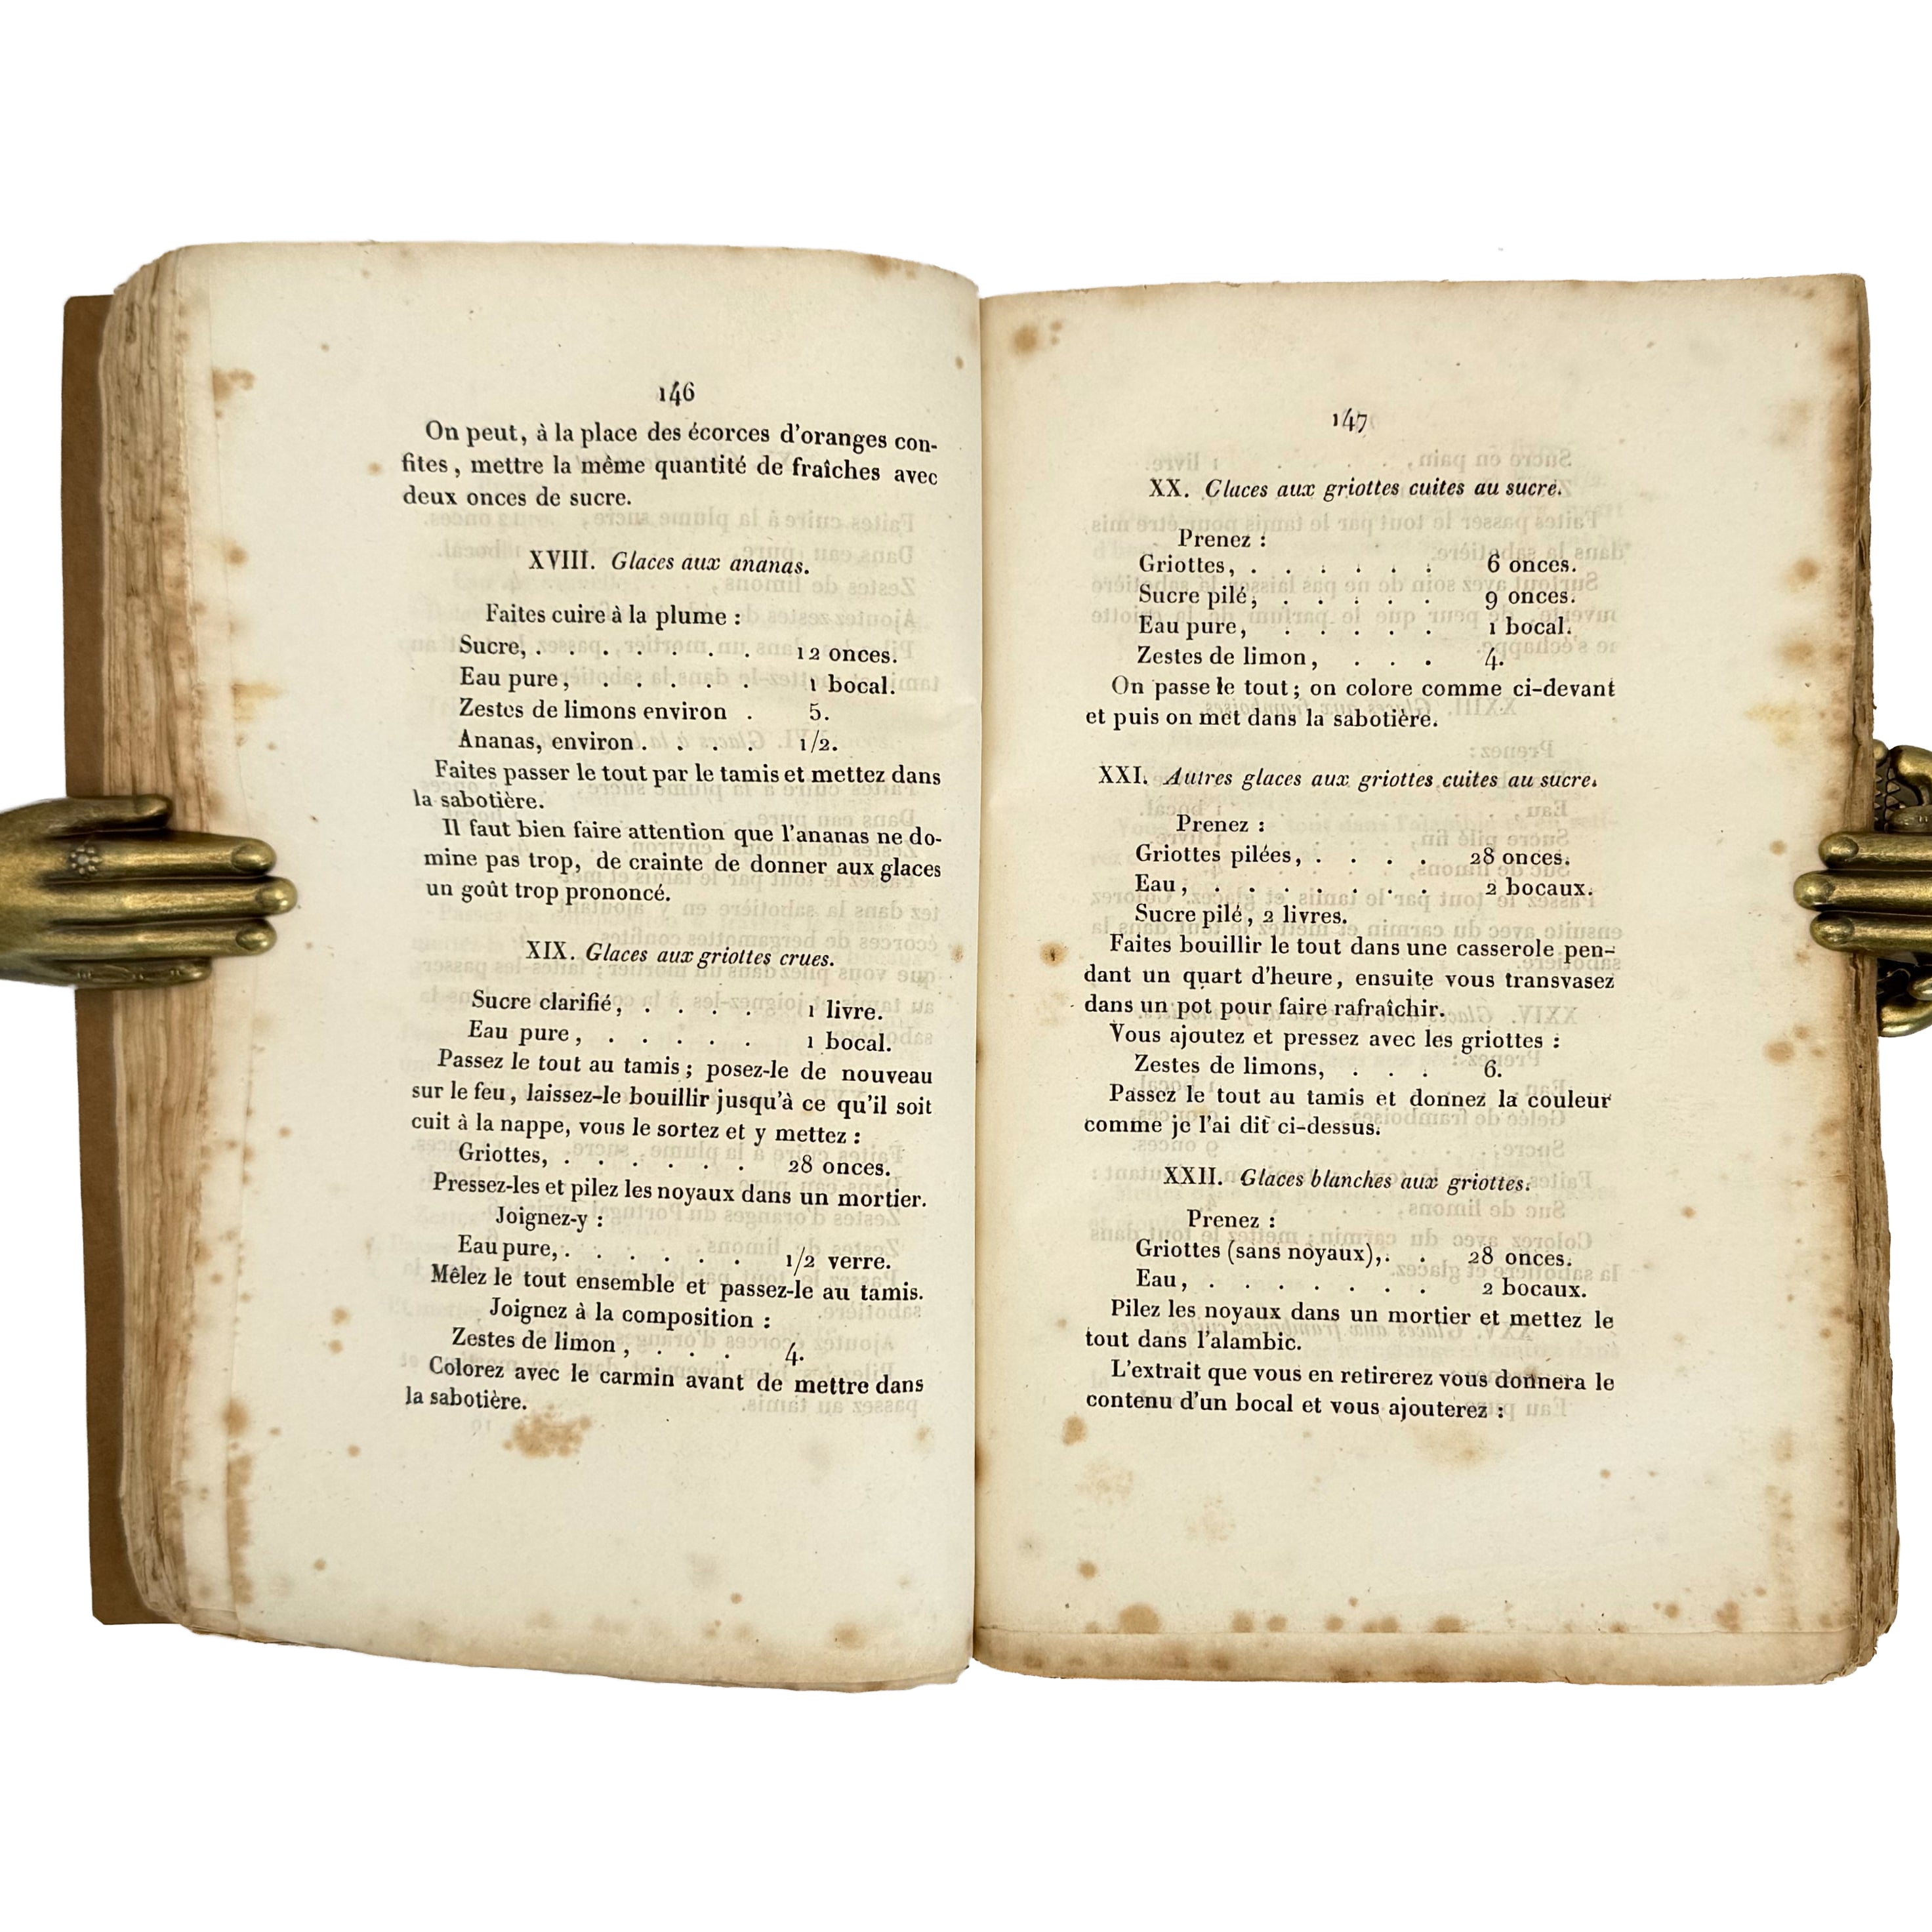 146
On peut, à la place des écorces d'oranges con-
fites, mettre la même quantité de fraîches avec
deux onces de sucre.
XVIII. Glaces aux ananas.
Faites cuire à la plume :
Sucre, . . . . . . . 12 onces.
Eau pure, . . . . . 1 bocal.
Zestes de limons environ . 5.
Ananas, environ . . . . 1/2.
Faites passer le tout par le tamis et mettez dans
la sabotière.
Il faut bien faire attention que l'ananas ne do-
mine pas trop, de crainte de donner aux glaces
un goût trop prononcé.
XIX. Glaces aux griottes crues.
Sucre clarifié, . . . . 1 livre.
Eau pure, . . . . . 1 bocal.
Passez le tout au tamis ; posez-le de nouveau
sur le feu, laissez-le bouillir jusqu'à ce qu'il soit
cuit à la nappe, vous le sortez et y mettez :
Griottes, . . . . . . 28 onces.
Pressez-les et pilez les noyaux dans un mortier.
Joignez-y :
Eau pure, . . . . . . 1/2 verre.
Mêlez le tout ensemble et passez-le au tamis.
Joignez à la composition :
Zestes de limon, . . . 4.
Colorez avec le carmin avant de mettre dans
la sabotière.
147
XX. Glaces aux griottes cuites au sucre.
Prenez :
Griottes, . . . . . . 6 onces.
Sucre pilé, . . . . . 9 onces.
Eau pure, . . . . . 1 bocal.
Zestes de limon, . . . 4.
On passe le tout ; on colore comme ci-devant
et puis on met dans la sabotière.
XXI. Autres glaces aux griottes cuites au sucre.
Prenez :
Griottes pilées, . . . . 28 onces.
Eau, . . . . . . . 2 bocaux.
Sucre pilé, 2 livres.
Faites bouillir le tout dans une casserole pen-
dant un quart d'heure, ensuite vous transvasez
dans un pot pour faire rafraîchir.
Vous ajoutez et pressez avec les griottes :
Zestes de limons, . . . 6.
Passez le tout au tamis et donnez la couleur
comme je l'ai dit ci-dessus.
XXII. Glaces blanches aux griottes.
Prenez :
Griottes (sans noyaux), . . 28 onces.
Eau, . . . . . . . 2 bocaux.
Pilez les noyaux dans un mortier et mettez le
tout dans l'alambic.
L'extrait que vous en retirerez vous donnera le
contenu d'un bocal et vous ajouterez :